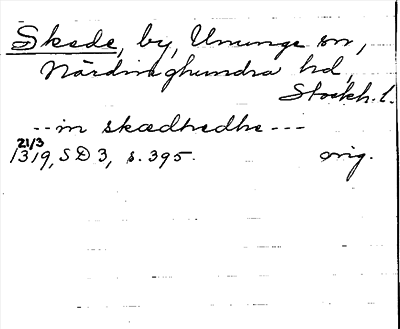 Skede, by, Ununge sn,
Närdinghundra hd,
Stockh. l.
--- in skædhedhe ---
21/3
1319, SD 3, s. 395. orig.